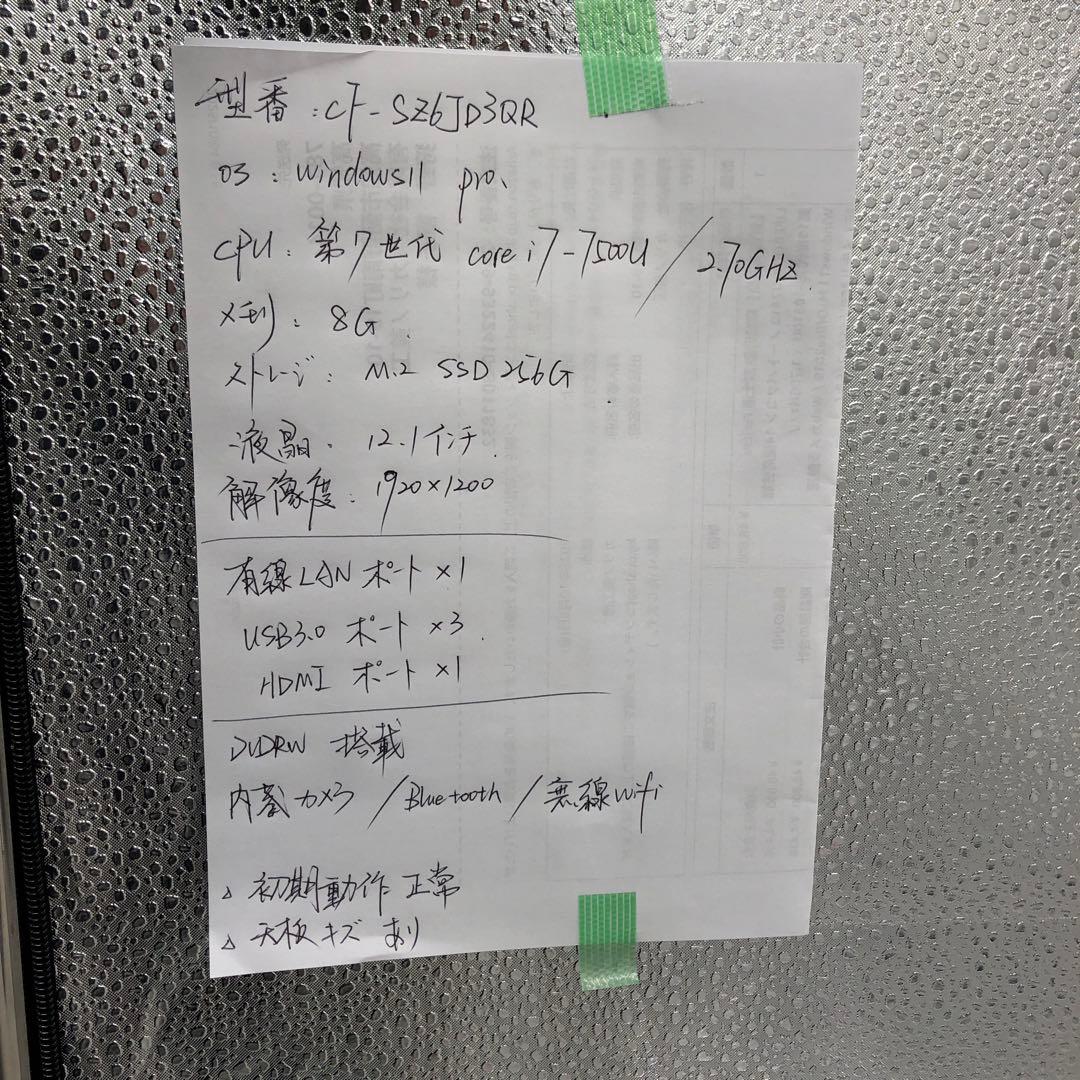 型番:CF-SZ6JD3QR
OS:Windows11 pro、
CPU:第7世代 core i7-7500U/2.70GHz
メモリ:8G
ストレージ:M.2 SSD 256G
液晶:12.1インチ
解像度:1920×1200
有線LANポート×1
USB3.0 ポート×3
HDMI ポート×1
DVDRW 搭載
内蔵カメラ/Bluetooth/無線wifi
△初期動作正常
△天板キズあり